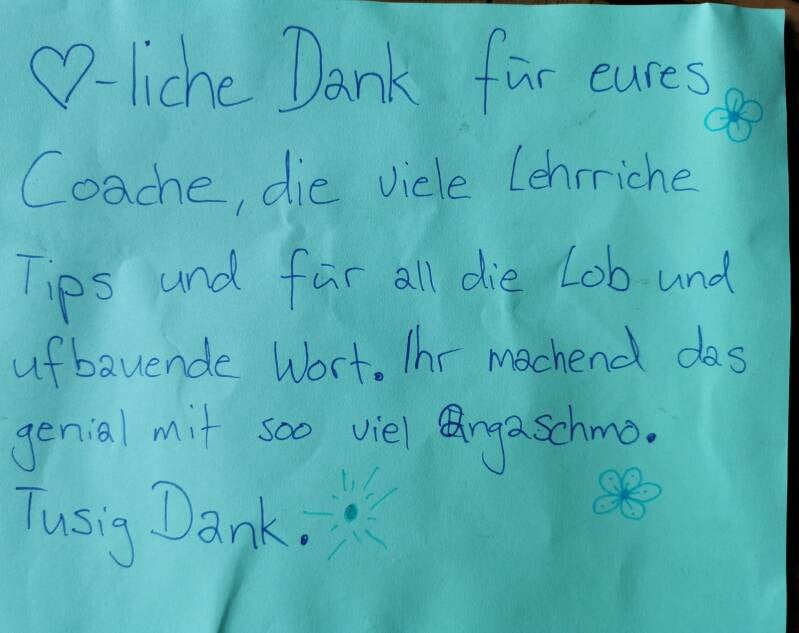 ♡-liche Dank für eures
Coache, die viele Lehrriche
Tips und für all die Lob und
ufbauende Wort. Ihr machend das
genial mit soo viel Angaschmo.
Tusig Dank.